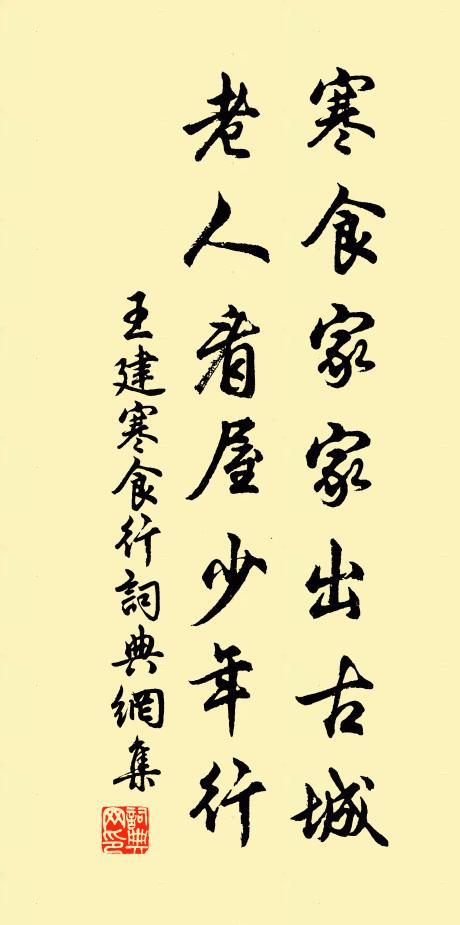 寒食家家出古城
老人看屋少年行
王建寒食行詞典網集
詞典网印